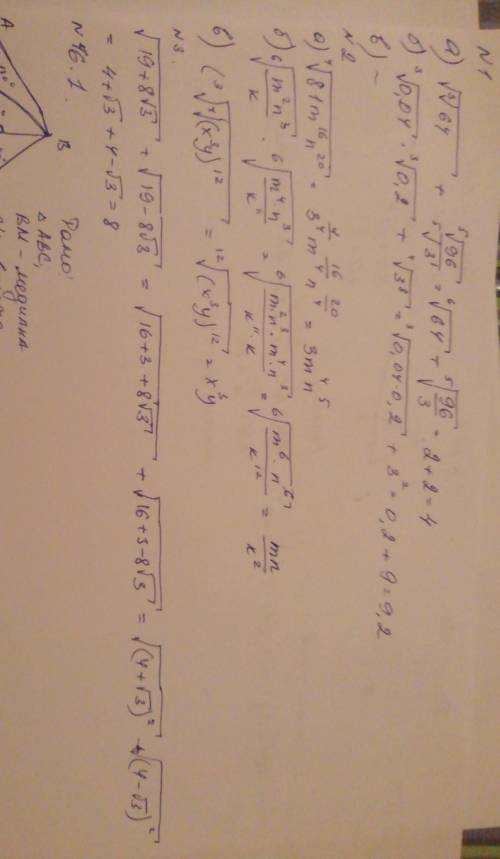 N1
а) √∛64 + ⁵√96 / ⁵√3 = ⁶√64 + ⁵√(96/3) = 2+2=4
б) ³√0,04 · ³√0,2 + ⁴√3⁸ = ³√0,04·0,2 + 3² = 0,2+9=9,2
в) –
N2
а) ⁴√81m¹⁶n²⁰ = 3^(4/4) m^(16/4) n^(20/4) = 3m⁴n⁵
б) ⁶√(m²n³/к) · ⁶√(m⁴n³/к¹¹) = ⁶√(m²·n³·m⁴·n³/к¹¹·к) = ⁶√(m⁶·n⁶/к¹²) = mn/к²
в) (³√⁴√(x³y)¹² = ¹²√(x³y)¹² = x³y
N3.
√19+8√3 + √19-8√3 = √16+3+8√3 + √16+3-8√3 = √(4+√3)² + √(4-√3)²
= 4+√3+4-√3=8
N46.1.
A
B
Дано:
△ABC,
BM - медиана